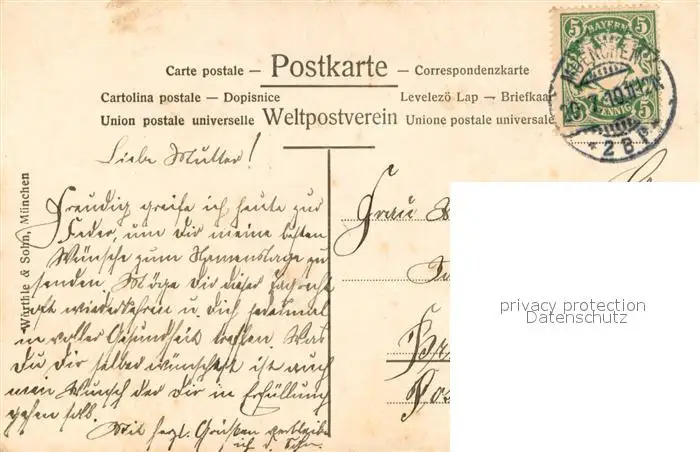 Carte postale – Postkarte – Correspondenzkarte
Cartolina postale – Dopisnice Levelező Lap – Briefkaart
Union postale universelle Weltpostverein Unione postale universale
5 BAYERN 5
5 PFENNIG 5
MUENCHEN
* 2 B
Liebe Mutter!
Freudig greife ich heute zur
Feder, um Dir meine besten
Wünsche zum Namenstage zu
senden. Möge Dir dieser
oft wiederkehren u. Dich jedesmal
in voller Gesundheit treffen. Was
Du Dir selber wünschest ist auch
mein Wunsch der Dir in Erfüllung
gehen soll.
Mit herzl. Grüßen verbleibe
ich d. Sohn.
Frau
Würthle & Sohn, München
privacy protection
Datenschutz